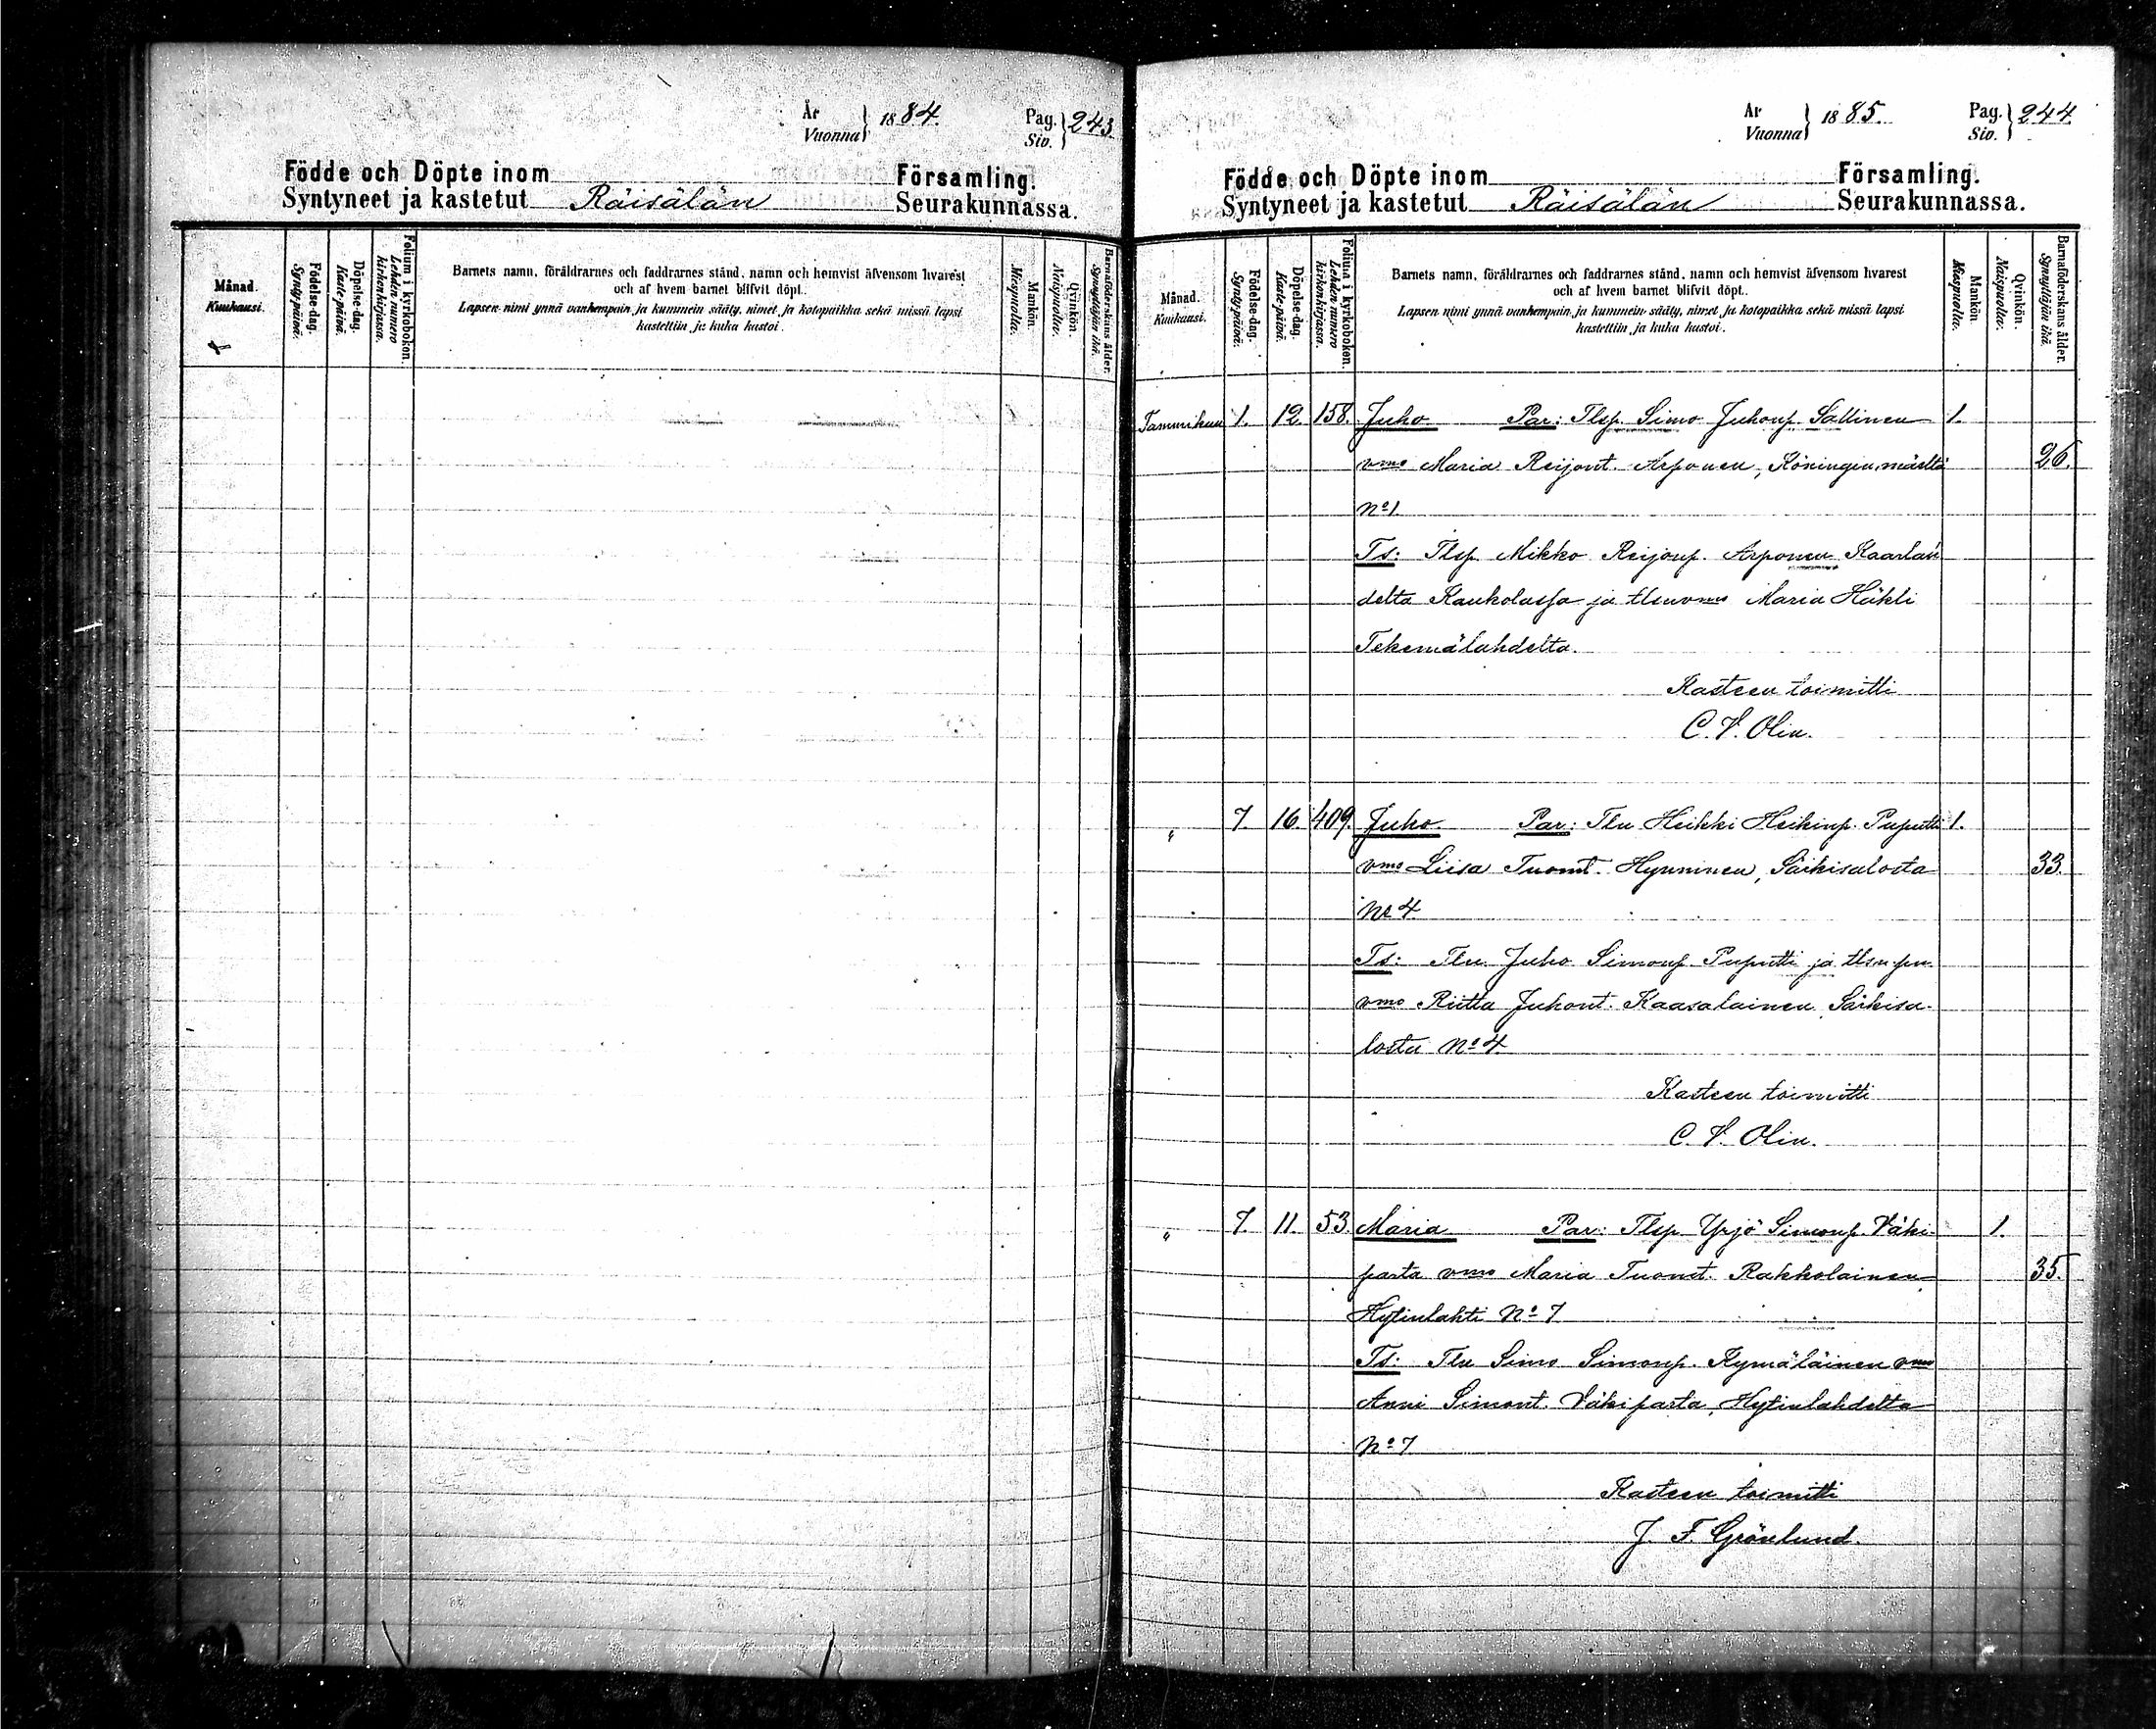 År
Vuonna } 1884.
Pag.
Siv. } 243
Födde och Döpte inom Församling.
Syntyneet ja kastetut Räisälän Seurakunnassa.
Månad.
Kuukausi.
Födelse-dag.
Synty-päivä.
Döpelse-dag.
Kaste-päivä.
Folium i kyrkoboken.
Lehden numero kirkonkirjassa.
Barnets namn, föräldrarnes och faddrarnes stånd, namn och hemvist äfvensom hvarest
och af hvem barnet blifvit döpt.
Lapsen nimi ynnä vanhempain ja kummein sääty, nimet ja kotopaikka sekä missä lapsi
kastettiin ja kuka kastoi.
Mankön.
Miespuolta.
Qvinkön.
Naispuolta.
Barnaföderskans ålder.
Synnyttäjän ikä.
År
Vuonna } 1885.
Pag.
Siv. } 244
Födde och Döpte inom Församling.
Syntyneet ja kastetut Räisälän Seurakunnassa.
Månad.
Kuukausi.
Födelse-dag.
Synty-päivä.
Döpelse-dag.
Kaste-päivä.
Folium i kyrkoboken.
Lehden numero kirkonkirjassa.
Barnets namn, föräldrarnes och faddrarnes stånd, namn och hemvist äfvensom hvarest
och af hvem barnet blifvit döpt.
Lapsen nimi ynnä vanhempain ja kummein sääty, nimet ja kotopaikka sekä missä lapsi
kastettiin ja kuka kastoi.
Mankön.
Miespuolta.
Qvinkön.
Naispuolta.
Barnaföderskans ålder.
Synnyttäjän ikä.
Tammikuu 1. 12. 158. Juho Par: Tlsp. Simo Juhonp. Sallinen 1.
vmo Maria Reijont. Arponen, Köningin, mäeltä 26.
No 1
Ts: Tlsp Mikko Reijonp. Arponen Kaarlan
delta Kaukolassa ja tlsnvmo Maria Häkli
Tekemälahdelta.
Kasteen toimitti
C. V. Olin.
" 7. 16. 409. Juho. Par: Tln Heikki Heikinp. Puputti 1.
vmo Liisa Tuomt. Hynninen, Särkisalosta 33.
No 4
Ts: Tln Juho Simonp. Puputti ja tlsn pn
vmo Riitta Juhont. Kaasalainen Särkisa-
losta No 4
Kasteen toimitti
C. V. Olin.
" 7. 11. 53. Maria Par: Tlsp Yrjö Simonp. Väki- 1.
parta vmo Maria Tuomt. Rakkolainen 35.
Hytinlahti No 7
Ts: Tln Simo Simonp. Kymäläinen vmo
Anni Simont. Väkiparta, Hytinlahdelta
No 7
Kasteen toimitti
J. F. Grönlund.